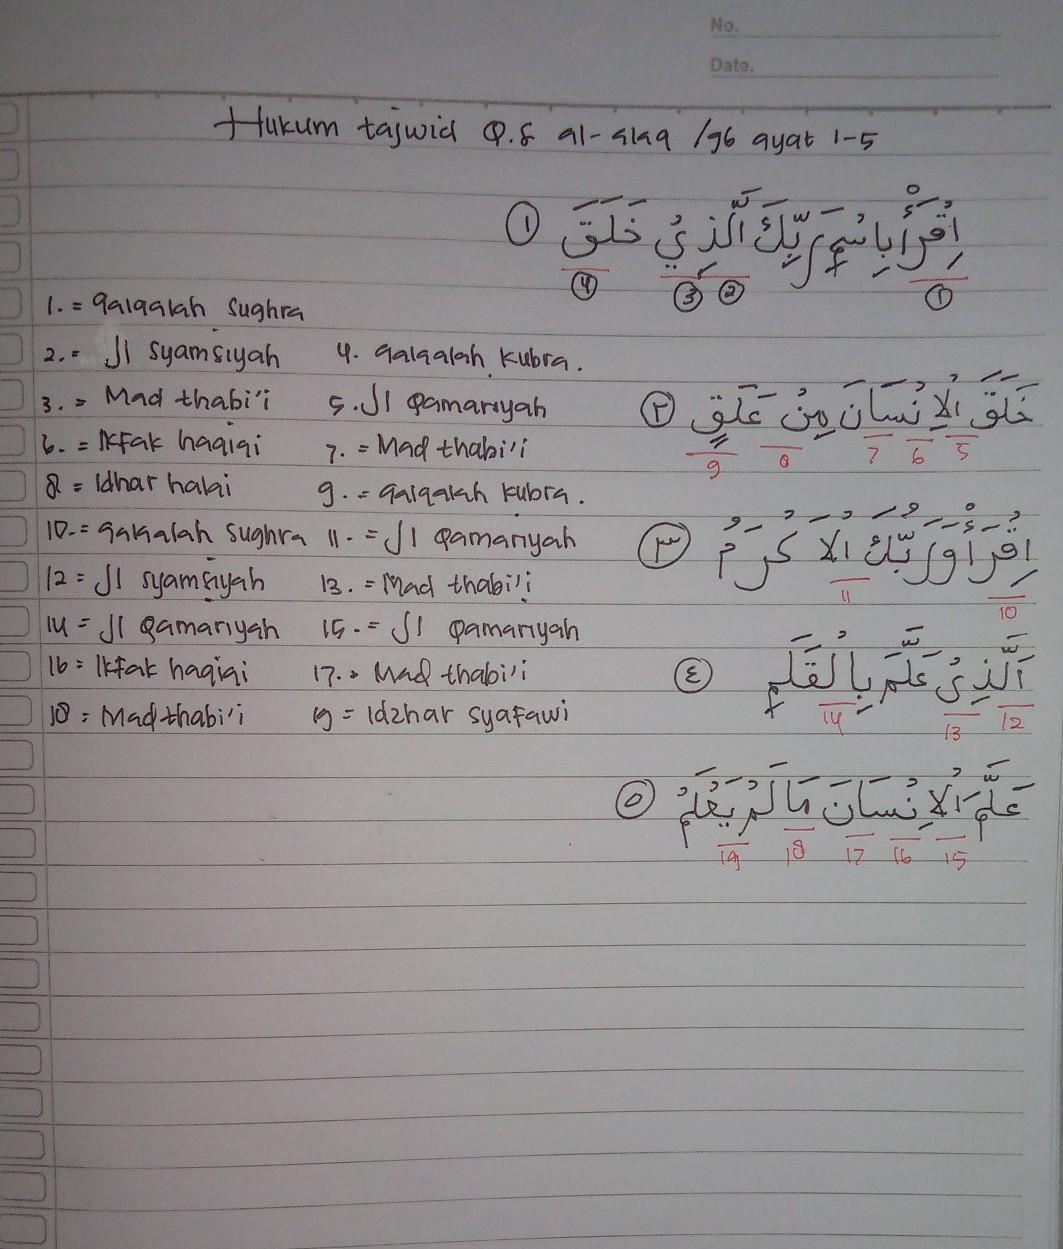 No.
Date.
Hukum tajwid Q.S al-alaq /96 ayat 1-5
① اِقْرَأْ بِاسْمِ رَبِّكَ الَّذِيْ خَلَقَ
④ ③ ② ①
1. = qalqalah sughra
2. = ال syamsiyah 4. qalqalah kubra.
3. = Mad thabi'i 5. ال qamariyah
② خَلَقَ الْاِنْسَانَ مِنْ عَلَقٍ
9 8 7 6 5
6. = Ikfak haqiqi 7. = Mad thabi'i
8 = Idhar halqi 9. = qalqalah kubra.
10. = qakalah sughra 11. = ال qamariyah
③ اِقْرَأْ وَرَبُّكَ الْاَكْرَمُ
11 10
12 = ال syamsiyah 13. = Mad thabi'i
14 = ال qamariyah 15. = ال qamariyah
16 = Ikfak haqiqi 17. = Mad thabi'i
④ اَلَّذِيْ عَلَّمَ بِالْقَلَمِ
14 13 12
18 = Mad thabi'i 19 = Idzhar syafawi
⑤ عَلَّمَ الْاِنْسَانَ مَا لَمْ يَعْلَمْ
19 18 17 16 15